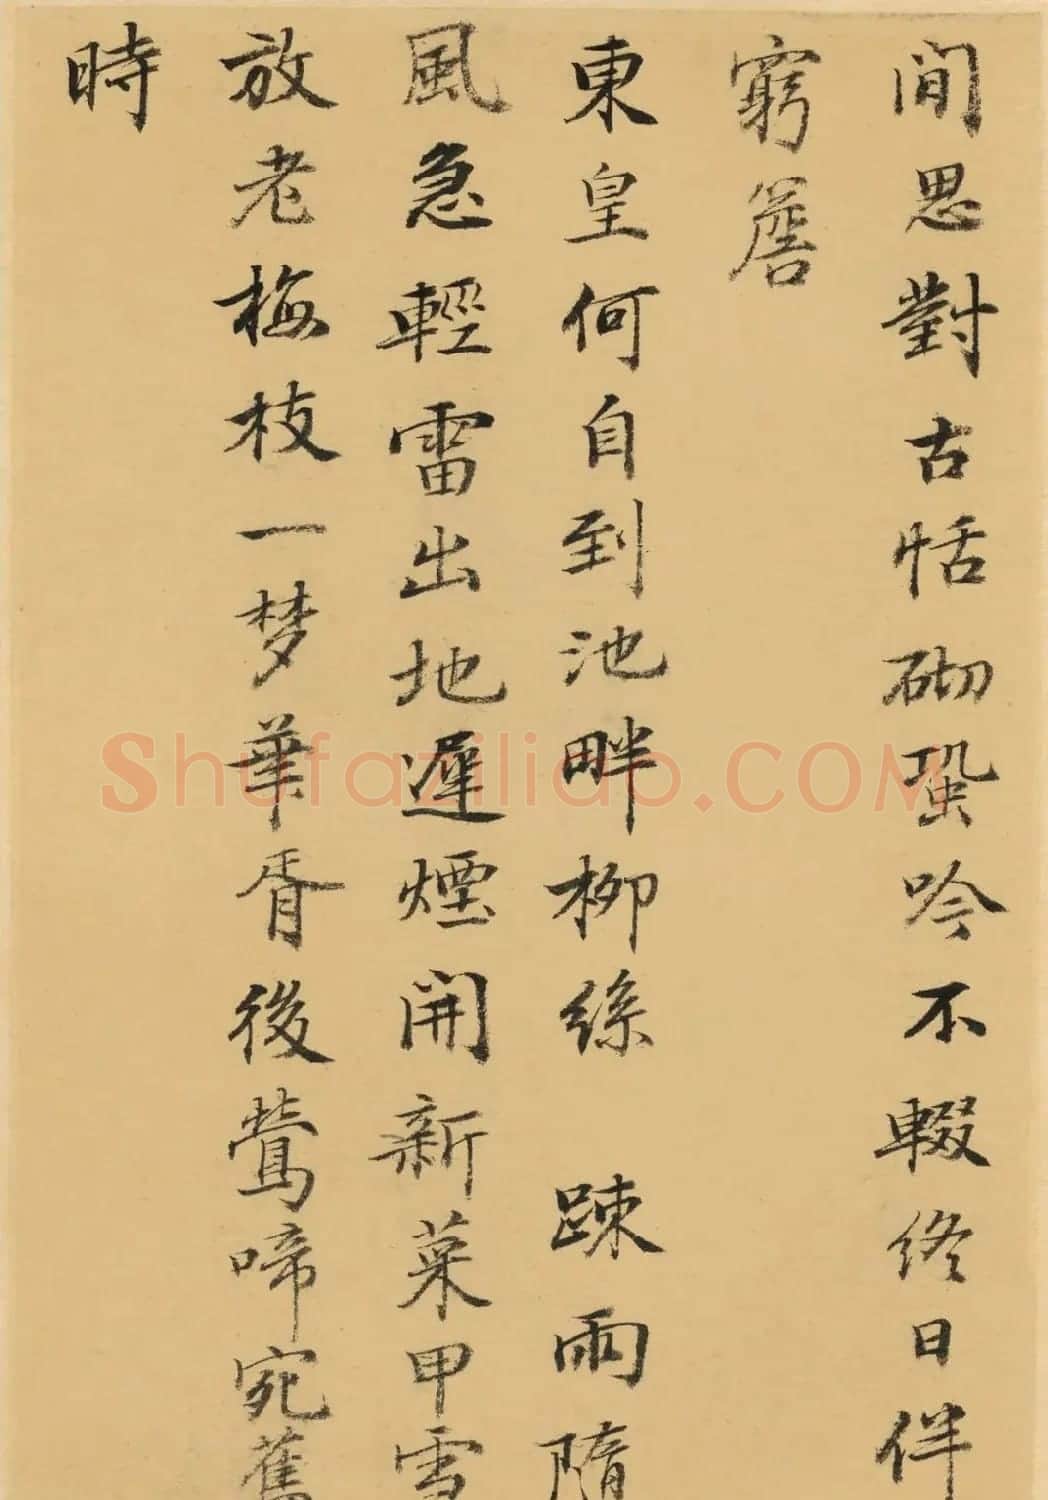 閒思對古恬砌蛩吟不輟終日伴
窮簷
東皇何自到池畔柳絲 踈雨隋
風急輕雷出地遲煙開新菜甲雪
放老梅枝一梦華胥後鶯啼宛舊
時
Shufaziliao.COM